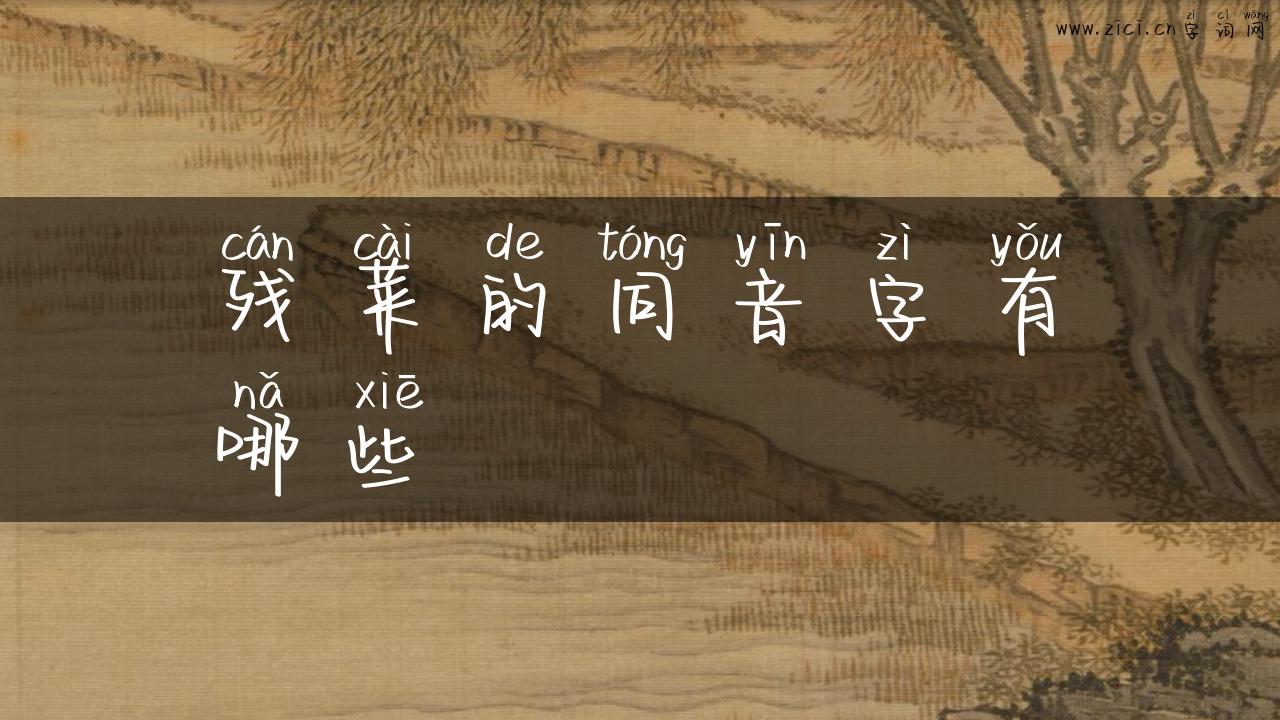 zì cí wǎng
www.zici.cn 字 词 网
cán cài de tóng yīn zì yǒu
残 菜 的 同 音 字 有
nǎ xiē
哪 些